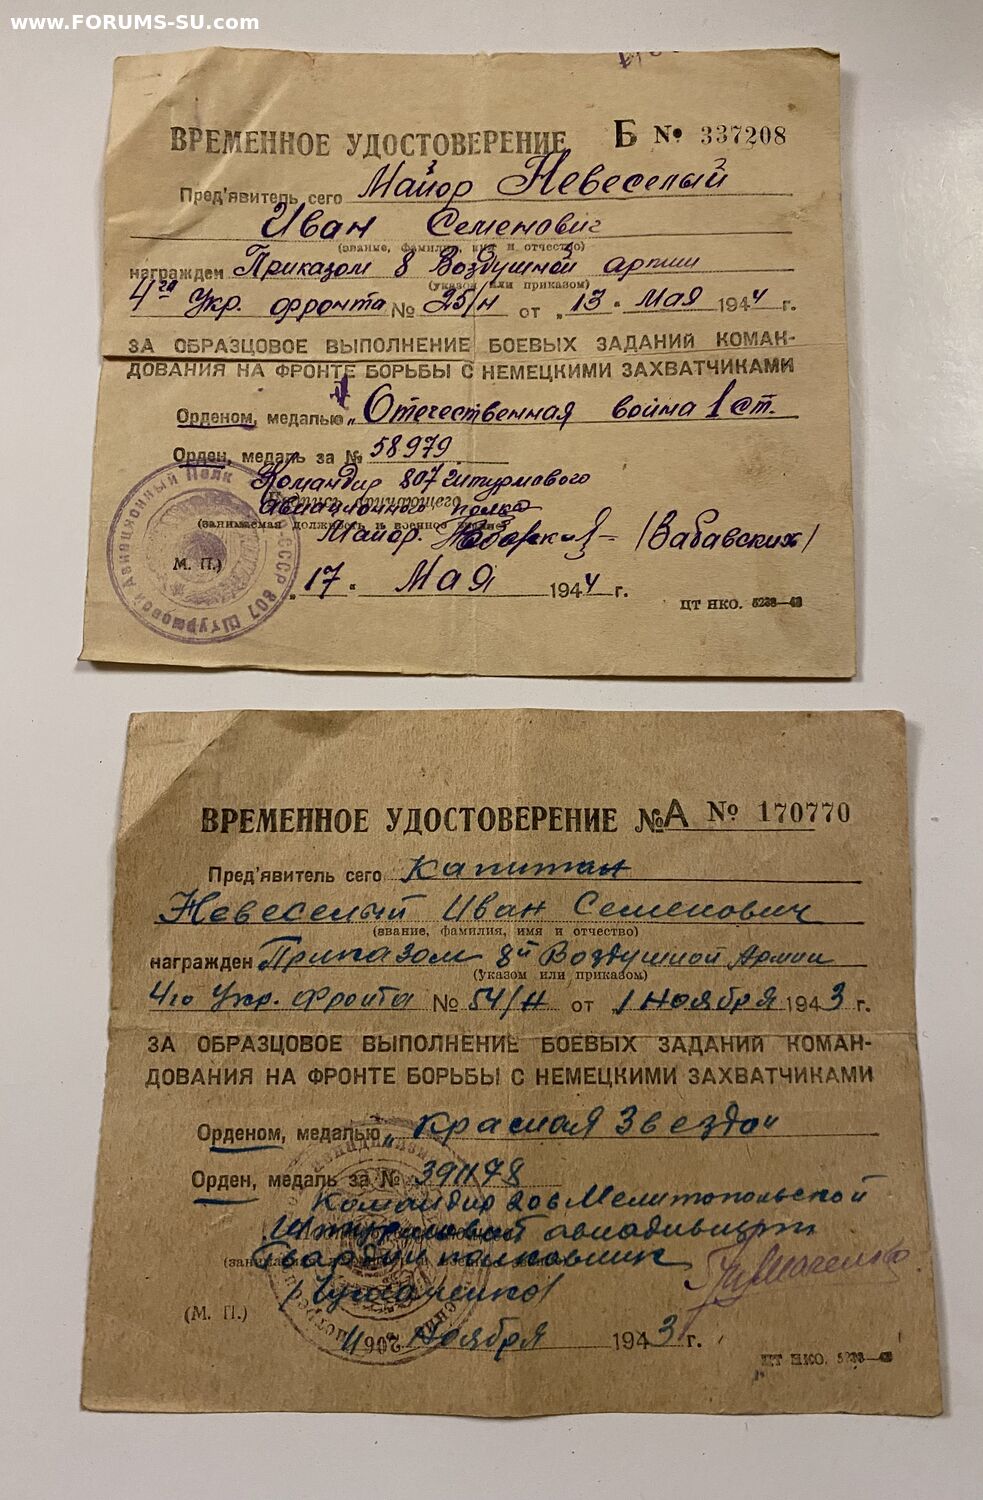 www.FORUMS-SU.com
ВРЕМЕННОЕ УДОСТОВЕРЕНИЕ Б № 337208
Пред'явитель сего Майор Невеселый
Иван Семенович
(звание, фамилия, имя и отчество)
награжден Приказом 8 Воздушной армии
(указом или приказом)
4го Укр. фронта № 25/н от „13" Мая 1944 г.
ЗА ОБРАЗЦОВОЕ ВЫПОЛНЕНИЕ БОЕВЫХ ЗАДАНИЙ КОМАН-
ДОВАНИЯ НА ФРОНТЕ БОРЬБЫ С НЕМЕЦКИМИ ЗАХВАТЧИКАМИ
Орденом, медалью „Отечественная война 1 ст.
Орден, медаль за № 58979
Командир 807 штурмового
авиационного полка
(занимаемая должность и военное звание)
Майор. /Вабавских/
М. П.)
„17" Мая 1944 г.
ЦТ НКО. 5238—43
Штурмовой Авиационный Полк СССР 807
ВРЕМЕННОЕ УДОСТОВЕРЕНИЕ №А № 170770
Пред'явитель сего Капитан
Невеселый Иван Семенович
(звание, фамилия, имя и отчество)
награжден Приказом 8й Воздушной Армии
(указом или приказом)
4го Укр. Фронта № 54/н от 1 Ноября 1943 г.
ЗА ОБРАЗЦОВОЕ ВЫПОЛНЕНИЕ БОЕВЫХ ЗАДАНИЙ КОМАН-
ДОВАНИЯ НА ФРОНТЕ БОРЬБЫ С НЕМЕЦКИМИ ЗАХВАТЧИКАМИ
Орденом, медалью „Красная Звезда"
Орден, медаль за № 391178
Командир 206 Мелитопольской
Штурмовой авиадивизии
Гвардии полковник
(М. П.)
Ноября 1943 г.
ЦТ НКО. 5238—43